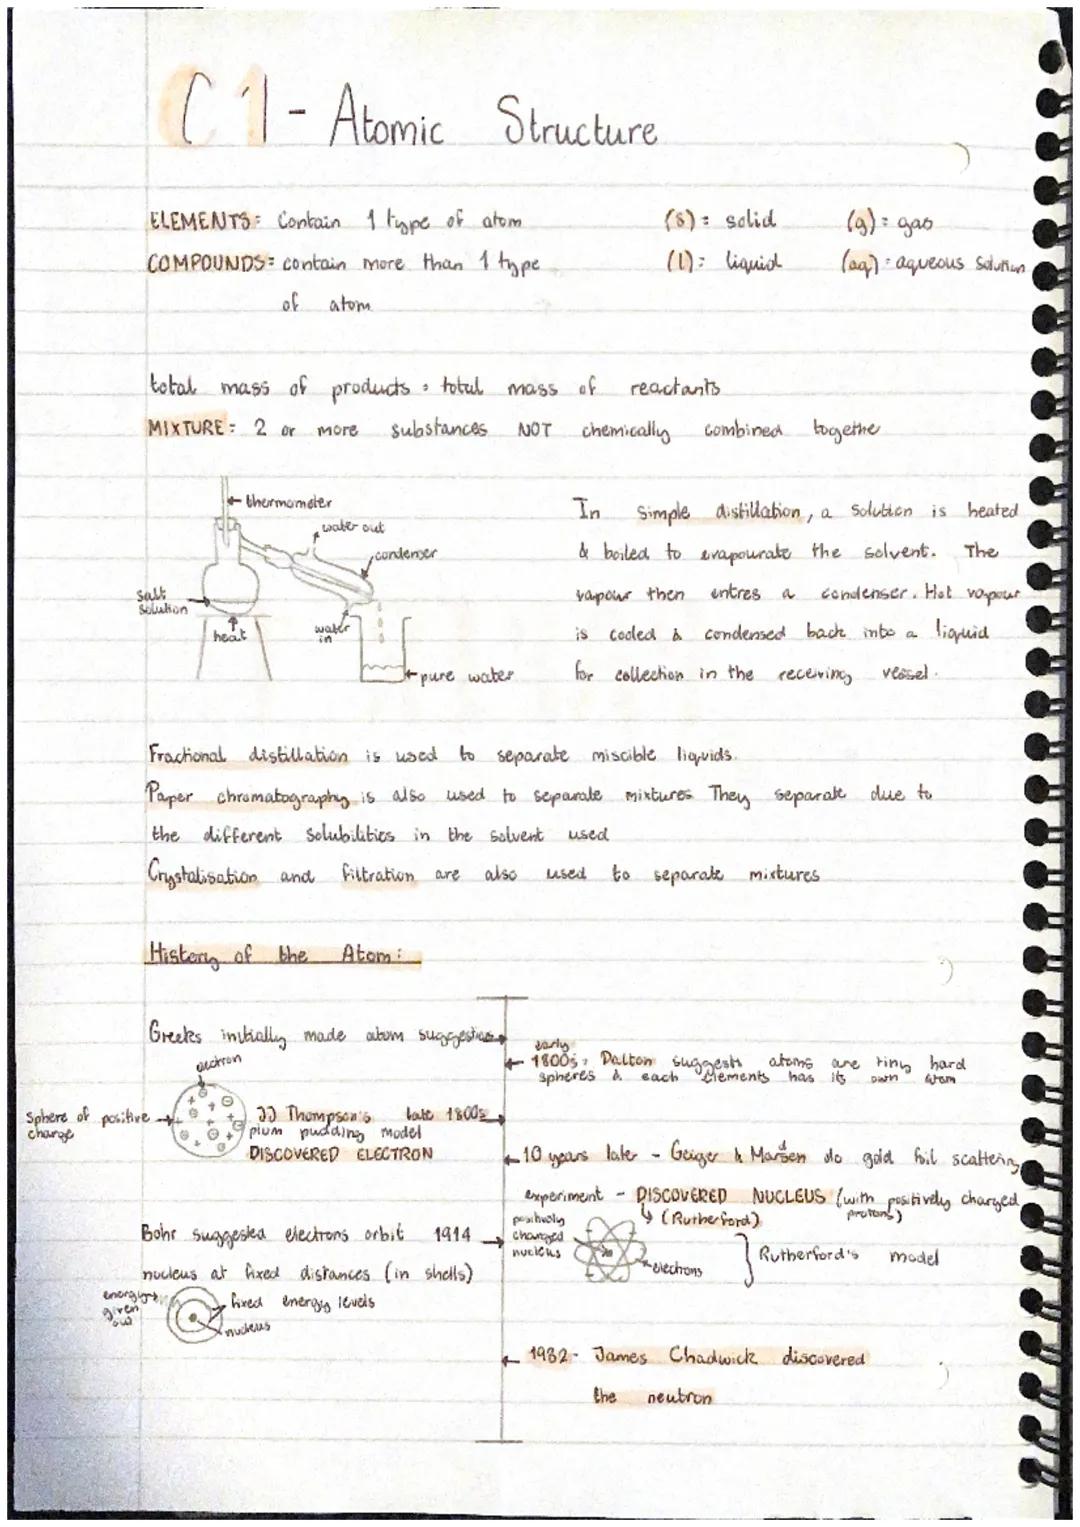 C1 - Atomic Structure
ELEMENTS: Contain 1 type of atom
(s) = solid (g) = gas
COMPOUNDS: contain more than 1 type
(l) = liquid (aq) = aqueous solution
of atom
total mass of products = total mass of reactants
MIXTURE: 2 or more substances NOT chemically combined togethe
thermometer
water out
condenser
salt
solution
heat
water
in
pure water
In simple distillation, a solution is heated
& boiled to evapourate the solvent. The
vapour then entres a condenser. Hot vapour
is cooled & condensed back into a liquid
for collection in the receiving vessel.
Fractional distillation is used to separate miscible liquids.
Paper chromatography is also used to separate mixtures They separate due to
the different solubilities in the solvent used
Crystalisation and filtration are also used to separate mixtures
History of the Atom:
Greeks initially made atom suggestions
early
1800s, Dalton suggests atoms are tiny hard
spheres & each elements has its own atom
electron
Sphere of positive
charge
JJ Thompson's late 1800s
plum pudding model
DISCOVERED ELECTRON
10 years later - Geiger & Marsden do gold foil scattering
experiment - DISCOVERED NUCLEUS (with positively charged
protons)
(Rutherford)
positively
charged
nucleus
electrons
Rutherford's model
Bohr suggested electrons orbit 1914
nucleus at fixed distances (in shells)
energy
given
out
fixed energy levels
nucleus
1932- James Chadwick discovered
the neutron